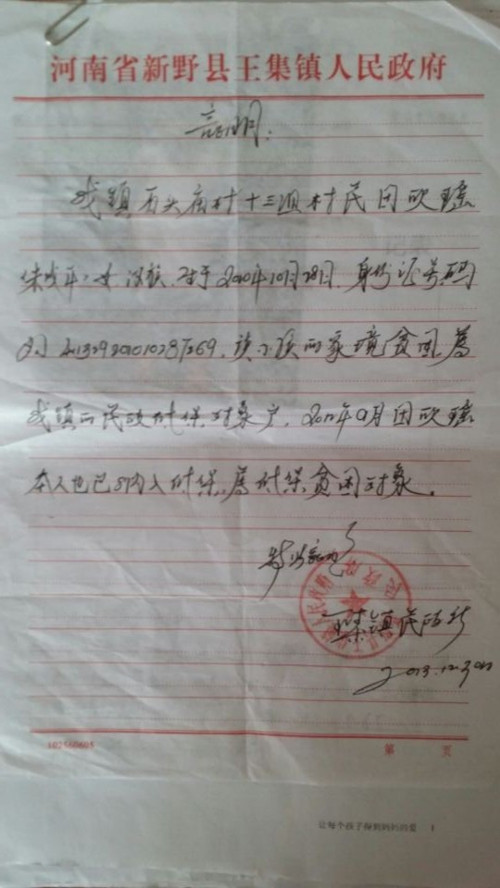 河南省新野县王集镇人民政府
证明:
我镇石头庙村十三组村民田欢瑶
女,汉族,生于2010年10月28日,身份证号码
为 该小孩的家境贫困为
我镇的民政低保对象户,2012年9月田欢瑶
本人也已纳入低保,为低保贫困对象。
特此证明
王集镇民政所
2013.12.30日
102560605
第 页
让每个孩子得到妈妈的爱 1